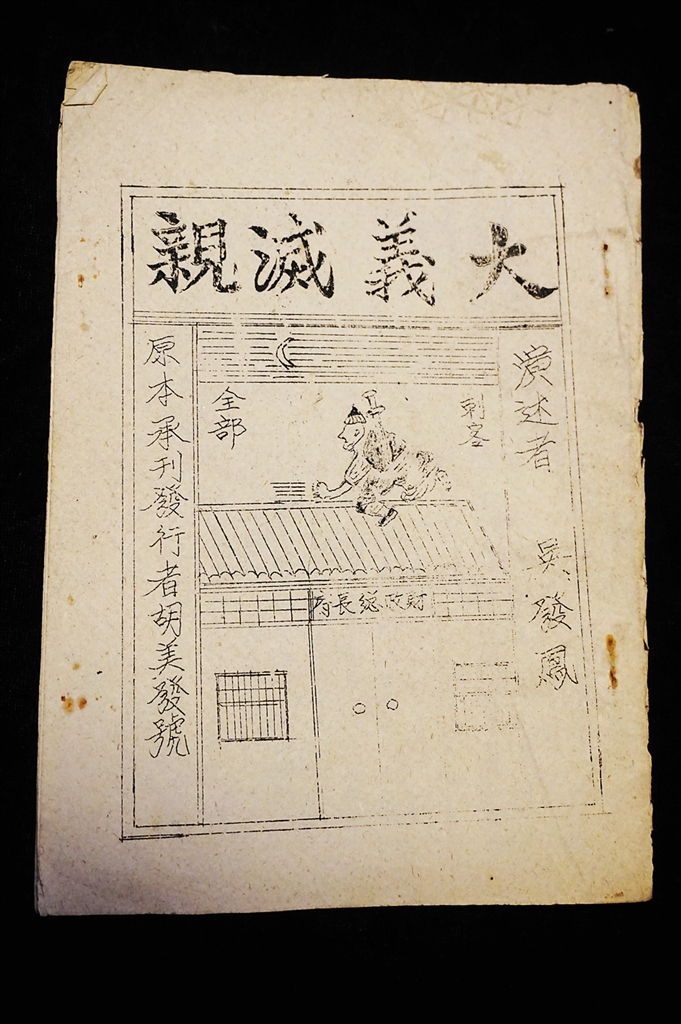 大義滅親
述者 吳發鳳
刺客
全部
財政總長府
原本承刊發行者胡美發號